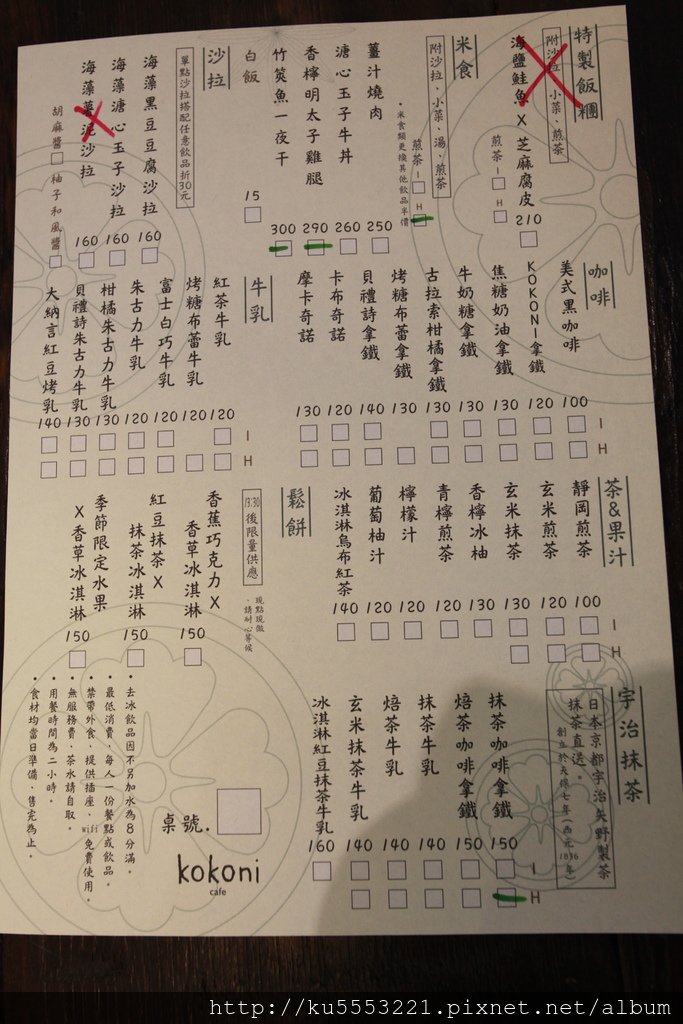 特製飯糰
附沙拉、小菜、煎茶
海鹽鮭魚 X 芝麻腐皮
210
煎茶 I H
米食
附沙拉、小菜、湯、煎茶
・米食類更換其他飲品半價
煎茶 I H
薑汁燒肉
250
溏心玉子牛丼
260
香檸明太子雞腿
290
竹筴魚一夜干
300
白飯
15
沙拉
單點沙拉搭配任意飲品折30元
海藻黑豆豆腐沙拉
160
海藻溏心玉子沙拉
160
海藻薯泥沙拉
160
胡麻醬 柚子和風醬
咖啡
I
H
美式黑咖啡
100
KOKONI拿鐵
120
焦糖奶油拿鐵
130
牛奶糖拿鐵
130
古拉索柑橘拿鐵
130
烤糖布蕾拿鐵
130
貝禮詩拿鐵
140
卡布奇諾
120
摩卡奇諾
130
牛乳
I
H
紅茶牛乳
120
烤糖布蕾牛乳
120
富士白巧牛乳
120
朱古力牛乳
120
柑橘朱古力牛乳
130
貝禮詩朱古力牛乳
130
大納言紅豆烤乳
140
茶&果汁
I
H
靜岡煎茶
100
玄米煎茶
120
玄米抹茶
130
香檸冰柚
130
青檸煎茶
120
檸檬汁
120
葡萄柚汁
120
冰淇淋烏布紅茶
140
鬆餅
13:30後限量供應
現點現做
、請耐心等候
香蕉巧克力 X
香草冰淇淋
150
紅豆抹茶 X
抹茶冰淇淋
150
季節限定水果
X 香草冰淇淋
150
宇治抹茶
日本京都宇治矢野製茶
抹茶直送。
創立於天保七年(西元1836年)
I
H
抹茶咖啡拿鐵
150
焙茶咖啡拿鐵
150
抹茶牛乳
140
焙茶牛乳
140
玄米抹茶牛乳
140
冰淇淋紅豆抹茶牛乳
160
・去冰飲品因不另加水為8分滿。
・最低消費，每人一份餐點或飲品。
・禁帶外食，提供插座、wifi免費使用。
・無服務費，茶水請自取。
・用餐時間為二小時。
・食材均當日準備，售完為止。
桌號.
kokoni
cafe
http://ku5553221.pixnet.net/album